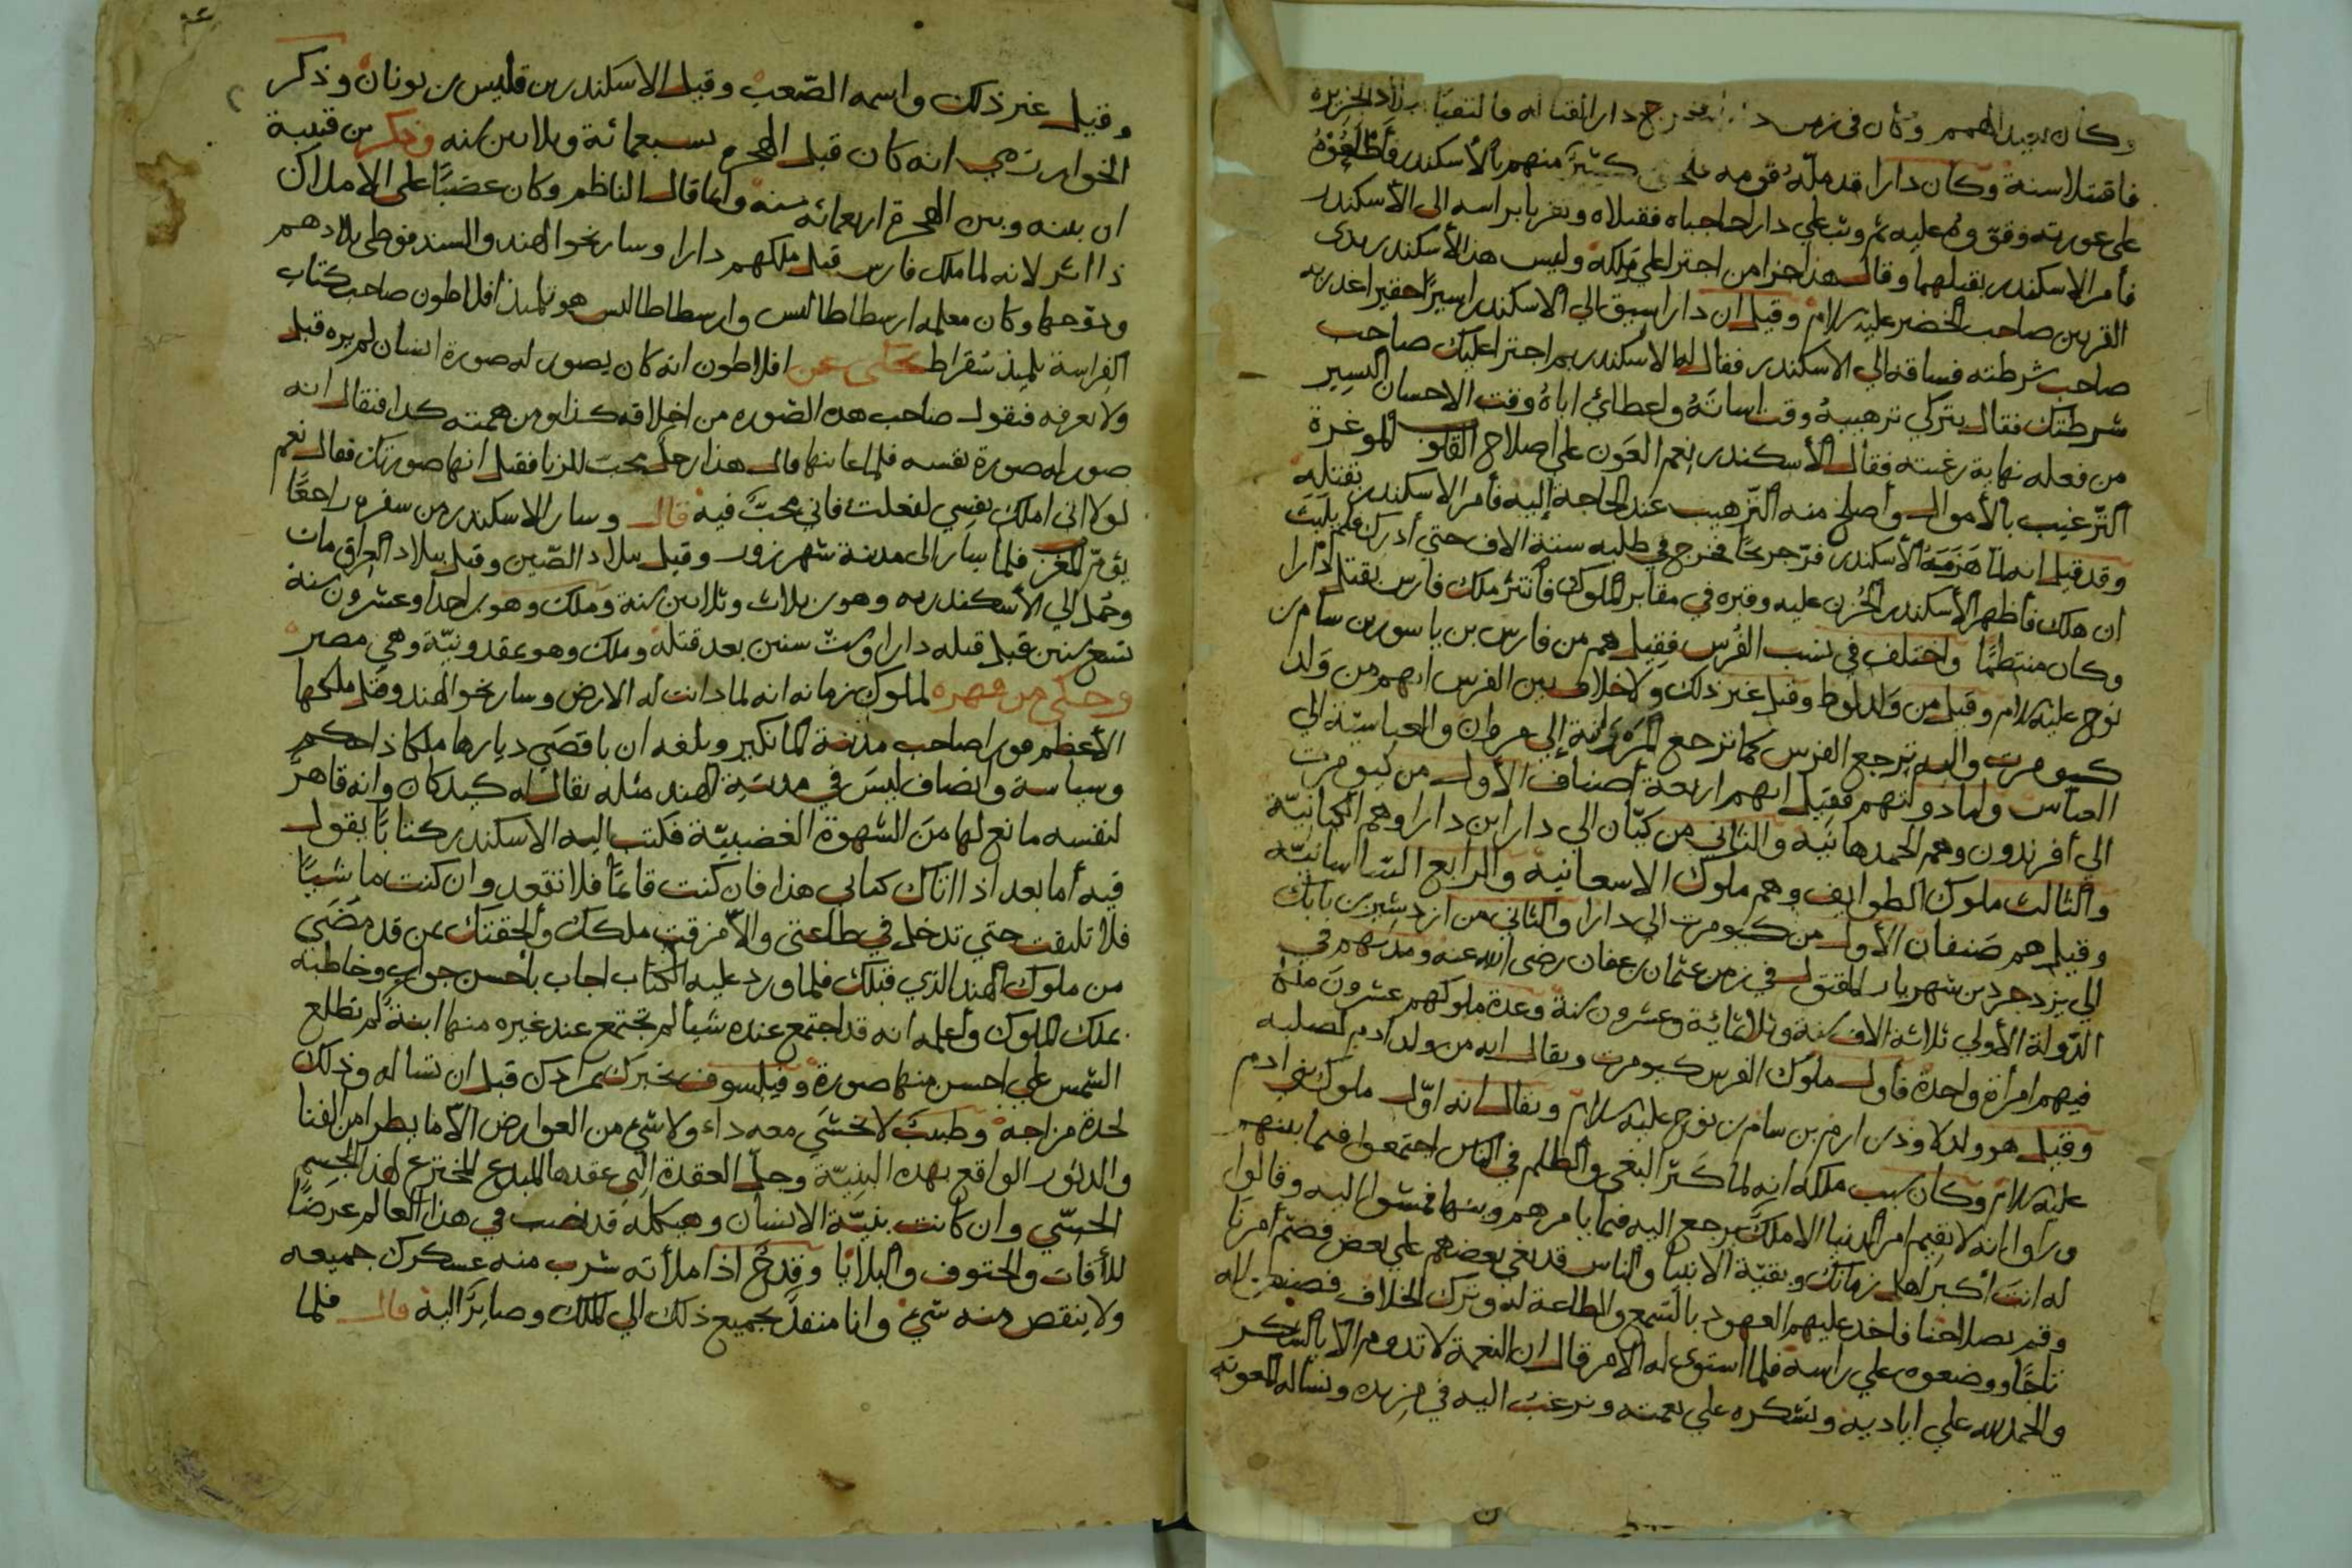 وكان بعيد الهمم وكان في زمن دارا فخرج دارا لقتاله فالتقيا ببلاد الجزيرة
فاقتتلا سنة وكان دارا قد ملّه قومه كثير منهم بالأسكندر فأطلعوه
على عورته وقوّوه عليه ثم وثب على دارا حاجباه فقتلاه وتقربا برأسه الى الأسكندر
فأمر الاسكندر بقتلهما وقال هذا جزا من اجترا على مَلِكه وليس هذا الأسكندر بذي
القرنين صاحب الخضر عليه السلام وقيل ان دارا سيق الي الاسكندر اسيرًا حقيرا غدر به
صاحب شرطته فساقه الي الاسكندر فقال له الاسكندر بم اجترا عليك صاحب
شرطتك فقال بتركي ترهيبه وقت اساته واعطائي اياه وقت الاحسان اليسير
من فعله نهاية رغبته فقال الأسكندر نعم العون على اصلاح القلوب الموغرة
الترغيب بالأموال وأصلح منه الترهيب عند الحاجة إليه فأمر الاسكندر بقتله
وقد قيل انه لمّا هَزَمَهُ الأسكندر فرّ جريحًا فخرج في طلبه ستة الاف حتي أدركه فلم يلبث
ان هلك فأظهر الأسكندر الحُزن عليه وقبره في مقابر الملوك فانتثر ملك فارس بقتل دارا
وكان منتظمًا واختلف في نسب الفُرس فقيل هم من فارس بن ياسور بن سام بن
نوح عليه السلام وقيل من وَلد لوط وقيل غير ذلك ولا خلاف بين الفرس انهم من وَلد
كيومرت واليه ترجع الفرس كما ترجع المَرْوَانية إلي مروان والعباسيّة الي
العباس واما دولتهم فقيل انهم اربعة أصناف الأول من كيومرت
الي أفرندون وهم الجمدهانيه والثاني من كيّان الي دارا ابن دارا وهم الكيانيّة
والثالث ملوك الطوايف وهم ملوك الاسعانيه والرابع الساسانيّه
وقيل هم صَنفان الأول من كيومرت الي دارا والثاني من ازدشير بن بابك
الي يزدجرد بن شهريار المقتول في زمن عثمان بن عفان رضي الله عنه ومدتهم في
الدّولة الأولي ثلاثة الاف سنة وثلاثمائة وعشرون سنة وعدة ملوكهم عشرون ملكا
فيهم امرأة واحدة فأول ملوك الفرس كيومرت ويقال انه من ولد ادم لصلبه
وقيل هو ولد لاوذ بن ارم بن سام بن نوح عليه السلام ويقال انه اوّل ملوك بني ادم
عليه السلام وكان سبب ملكه انه لما كثر البغي والظلم في الناس اجتمعوا فيما بينهم
وراوا انه لا يقيم امر الدنيا الا ملكٌ يرجع اليه فيما يامرهم وينهاهم فمشوا اليه وقالوا
له انت أكبر اهل زمانك وبقيّة الانبيا والناس قد بغي بعضهم علي بعض فضم أمرنا
وقم بصلاحنا فاخذ عليهم العهود بالسّمع والطاعة له وترك الخلاف فصنعوا له
تاجًا ووضعوه علي راسه فلما استوى له الامر قال ان النعمة لا تدوم الا بالشكر
والحمد لله علي اياديه ونشكره علي نعمته ونرغب اليه في مزيده ونساله المعونة
وقيل غير ذلك واسمه الصّعب وقيل الاسكندر بن قليس بن يونان وذكر
الخوارزمي انه كان قبل الهجرة بسبعمائة وثلاثين سنه وذكر بن قتيبة
ان بينه وبين الهجرة اربعمائه سنه وانما قال الناظم وكان عضبًا على الاملاك
ذا اثر لانه لما ملك فارس قتل ملكهم دارا وسار نحو الهند والسند فوطي بلادهم
ودوخها وكان معلمه ارسطاطاليس وارسطاطاليس هو تلميذ أفلاطون صاحب كتاب
الفراسة تلميذ سُقراط حكي عن افلاطون انه كان يصور له صورة انسان لم يره قبل
ولا يعرفه فيقول صاحب هذه الصّوره من اخلاقه كذا ومن همته كذا فيقال انه
صور له صورة نفسه فلما عاينها قال هذا رجل يحب للزنا فقيل انها صورتك فقال نعم
لولا اني املك نفسي لفعلت فاني محبٌّ فيه قال وسار الاسكندر من سفره راجعًا
يؤمّ المغرب فلما سار الى مدينة شهرزور وقيل ببلاد الصّين وقيل ببلاد العراق مات
وحُمل الي الأسكندريه وهو بن ثلاث وثلاثين سنة وملك وهو بن احدا وعشرون سنة
تسع سنين قبل قتله دارا وست سنين بعد قتله وملك وهو بمقدونيّة وهي مصر
وحكي من قهره لملوك زمانه انه لما دانت له الارض وسار نحو الهند وقتل ملكها
الأعظم فورا صاحب مدينة المانكير وبلغه ان باقصَي ديارها ملكا ذا حكم
وسياسة وانصاف ليسَ في مدينة الهند مثله يقال له كيد كان وانه قاهرٌ
لنفسه مانع لها منَ الشهوة الغضبيّة فكتب اليه الاسكندر كتابًا يقول
فيه أما بعد اذا اتاك كتابي هذا فان كنت قائمًا فلا تقعد وان كنت ماشيًا
فلا تلتفت حتي تدخل في طاعتي والّا مزقت ملكك وألحقتك بمن قد مَضَي
من ملوك الهند الذي قبلك فلما ورد عليه الكتاب اجاب بأحسن جواب وخاطبه
بملك الملوك وأعلمه انه قد اجتمع عنده شيأ لم تجتمع عند غيره منها ابنة لم تطلع
الشمس علي احسن منها صورة وفيلسوف يخبرك بمرادك قبل ان تساله وذلك
لحدة مزاجه وطبيبٌ لا تخشَي معه داء ولا شيء من العوارض الّا ما يطرا من الفنا
والدثور الواقع بهذه البنِيّة وحلّ العقدة التي عقدها المبدع المخترع لهذا الجسم
الحسّي وان كانت بنيّة الانسان وهيكله قد نصب في هذا العالم عرضًا
للأفات والحتوف والبلايا وقدحٌ اذا ملأته شرب منه عسكرك جميعه
ولا ينقص منه شيء وانا منفذٌ بجميع ذلك الي الملك وصايرًا اليه قال فلما